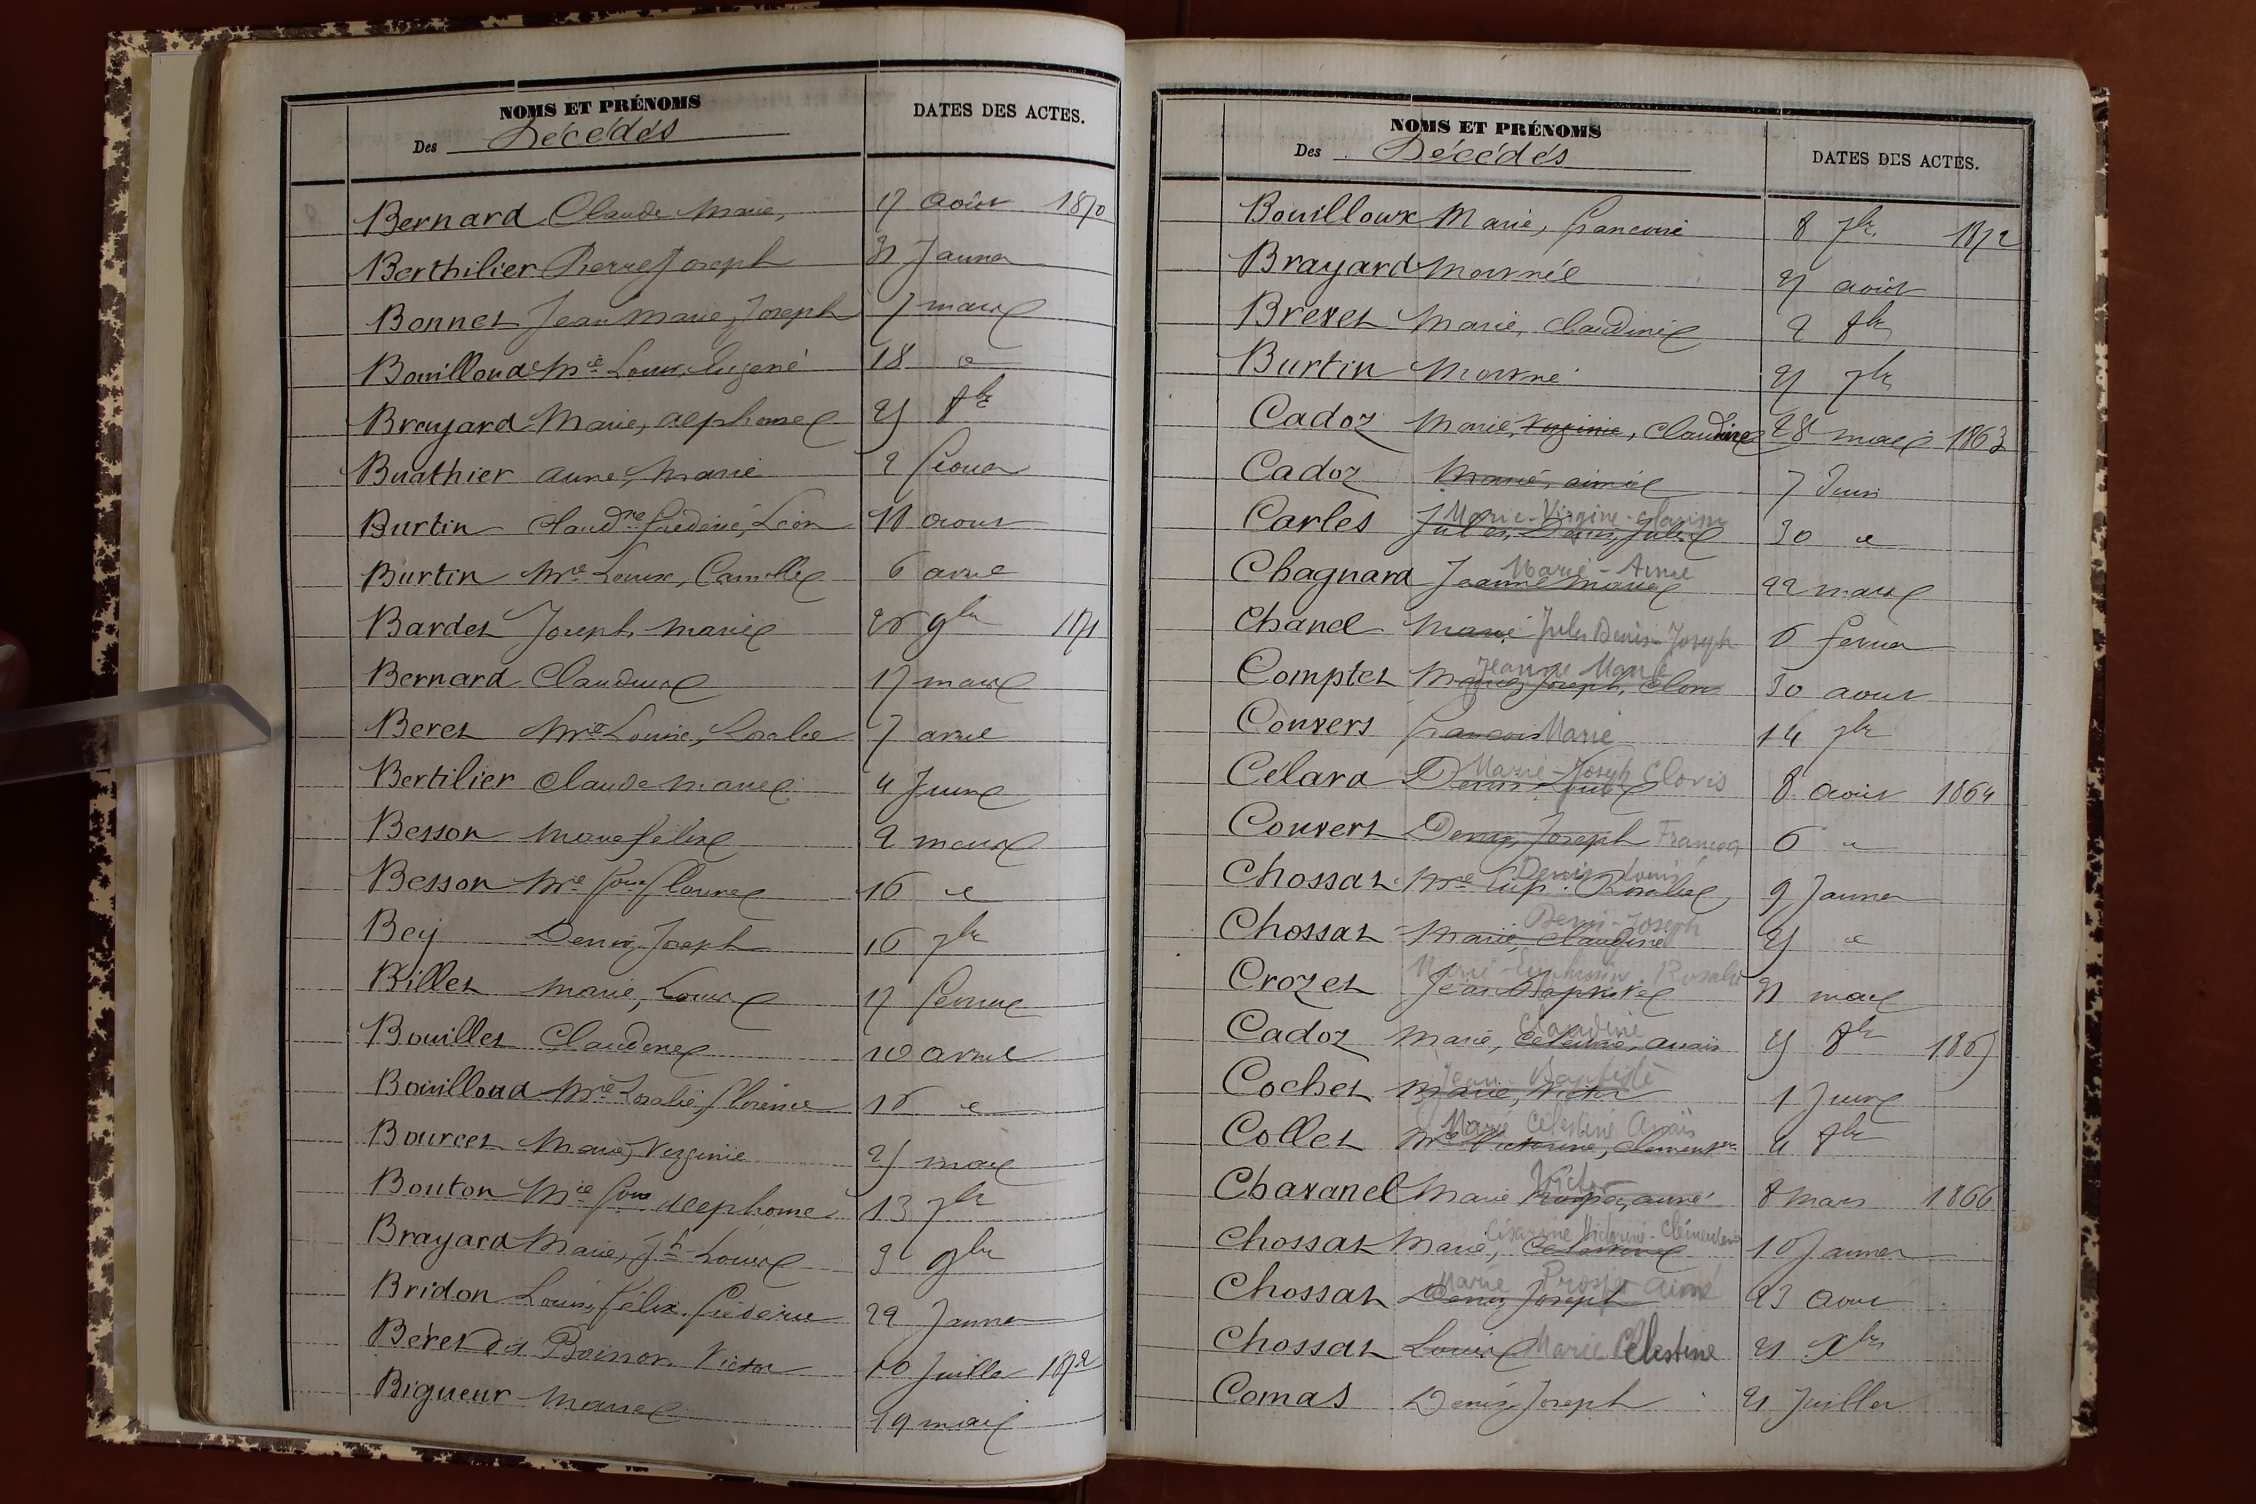 NOMS ET PRÉNOMS
Des Décédés
DATES DES ACTES.
Bernard Claude Marie, 17 août 1870
Berthilier Pierre Joseph 31 Janvier
Bonnet Jean Marie, Joseph 7 mars
Bouilloud Mie Louis, Eugène 18 d
Brayard Marie, Alphonse 25 8bre
Buathier anne, Marie 2 fevrier
Burtin Claudne fréderic, Léon 11 aout
Burtin Mie Louise, Camille 6 avril
Bardet Joseph, Marie 26 9bre 1871
Bernard Claudine 17 mars
Beret Mie Louise, Rosalie 7 avril
Bertilier Claude Marie 4 Juin
Besson Marie félix 2 mars
Besson Mie 16 d
Bey Denis, Joseph 16 7bre
Billet Marie, Louise 17 fevrier
Bouillet Claudine 10 avril
Bouilloud Mie Rosalie, florence 16 d
Bourcet Marie, Virginie 25 mai
Bouton Mie Alphonsine 13 7bre
Brayard Marie, Jh Louise 3 9bre
Bridon Louis, félix, fréderic 22 Janvier
Béret dit Boisson Victor 10 Juillet 1872
Bigueur Marie 19 mai
NOMS ET PRÉNOMS
Des Décédés
DATES DES ACTES.
Bouilloux Marie, francoise 8 7bre 1872
Brayard Mort né 25 août
Brevet Marie, Claudine 2 8bre
Burtin Mort né 21 7bre
Cadoz Marie, Virginie, Claudine 28 mai 1863
Cadoz Marie, aimée 7 Juin
Marie-Virginie-Clarisse
Carles Jules, Denis, Joseph 30 d
Marie-Aimé
Chagnard Jeanne Marie 22 mars
Chanel Marie Jules Denis Joseph 6 fevrier
Jeanne Marie
Comptet Marie, Joseph, Clovis 30 aout
Convert francois Marie 14 7bre
Marie-Joseph Clovis
Célard Denis Louis 8 août 1864
Convert Denis, Joseph François 6 d
Denis Louis
Chossat Mie Eup. Rosalie 9 Janvier
Denis-Joseph
Chossat Marie, Claudine 25 d
Marie-Euphrosine Rosalie
Crozet Jean Baptiste 31 mai
Claudine
Cadoz Marie, Célestine, anaïs 25 8bre 1865
Jean Baptiste
Cochet Marie, Victor 1 Juin
Marie Célestine Anaïs
Collet Mie Victorine, Clementine 4 8bre
Victor
Chavanel Marie Prosper, aimé 8 Mars 1866
Césarine Victorine-Clémentine
Chossat Marie, Célestine 10 Janvier
Marie Prosper Aimé
Chossat Denis, Joseph 23 Aout
Chossat Louise Marie Célestine 21 Xbre
Comas Denis, Joseph 21 Juillet